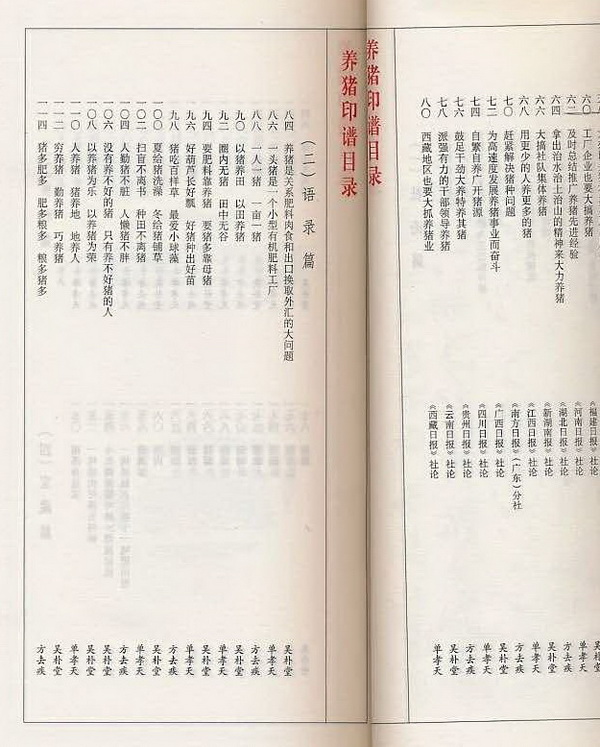 六〇 工厂企业也要大搞养猪 《福建日报》社论 吴朴堂
六二 及时总结推广养猪先进经验 《河南日报》社论 单孝天
六四 拿出治水治土治山的精神来大力养猪 《湖北日报》社论 方去疾
六六 大搞社队集体养猪 《新湖南报》社论 单孝天
六八 用更多的人养更多的猪 《江西日报》社论 单孝天
七〇 赶紧解决猪种问题 《南方日报》(广东)分社 方去疾
七二 为高速度发展养猪事业而奋斗 《广西日报》社论 单孝天
七四 自繁自养广开猪源 《四川日报》社论 方去疾
七六 鼓足干劲大养特养其猪 《贵州日报》社论 方去疾
七八 派强有力的干部领导养猪 《云南日报》社论 吴朴堂
八〇 西藏地区也要大抓养猪业 《西藏日报》社论 单孝天
养猪印谱目录
养猪印谱目录
(二)语录篇
八四 养猪是关系肥料肉食和出口换取外汇的大问题 吴朴堂
八六 一头猪是一个小型有机肥料工厂 单孝天
八八 一人一猪 一亩一猪 方去疾
九〇 以猪养田 以田养猪 吴朴堂
九二 圈内无猪 田中无谷 单孝天
九四 要肥料靠养猪 要猪多靠母猪 吴朴堂
九六 好葫芦长好瓢 好猪种出好苗 单孝天
九八 猪吃百样草 最爱小球藻 方去疾
一〇〇 夏给猪洗澡 冬给猪铺草 吴朴堂
一〇二 扫盲不离书 种田不离猪 单孝天
一〇四 人勤猪不脏 人懒猪不胖 方去疾
一〇六 没有养不好的猪 只有养不好猪的人 吴朴堂
一〇八 以养猪为乐 以养猪为荣 方去疾
一一〇 人养猪 猪养地 地养人 单孝天
一一二 穷养猪 勤养猪 巧养猪 吴朴堂
一一四 猪多肥多 肥多粮多 粮多猪多 方去疾